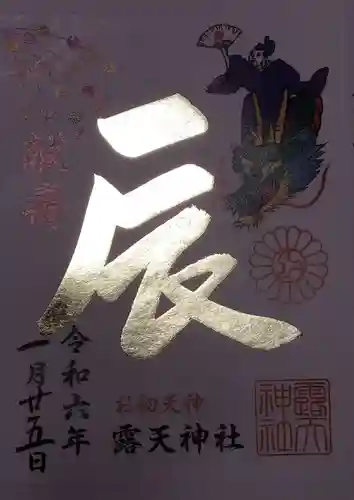 奉拝
辰
令和六年
一月廿五日
お初天神
露天神社
露天神社